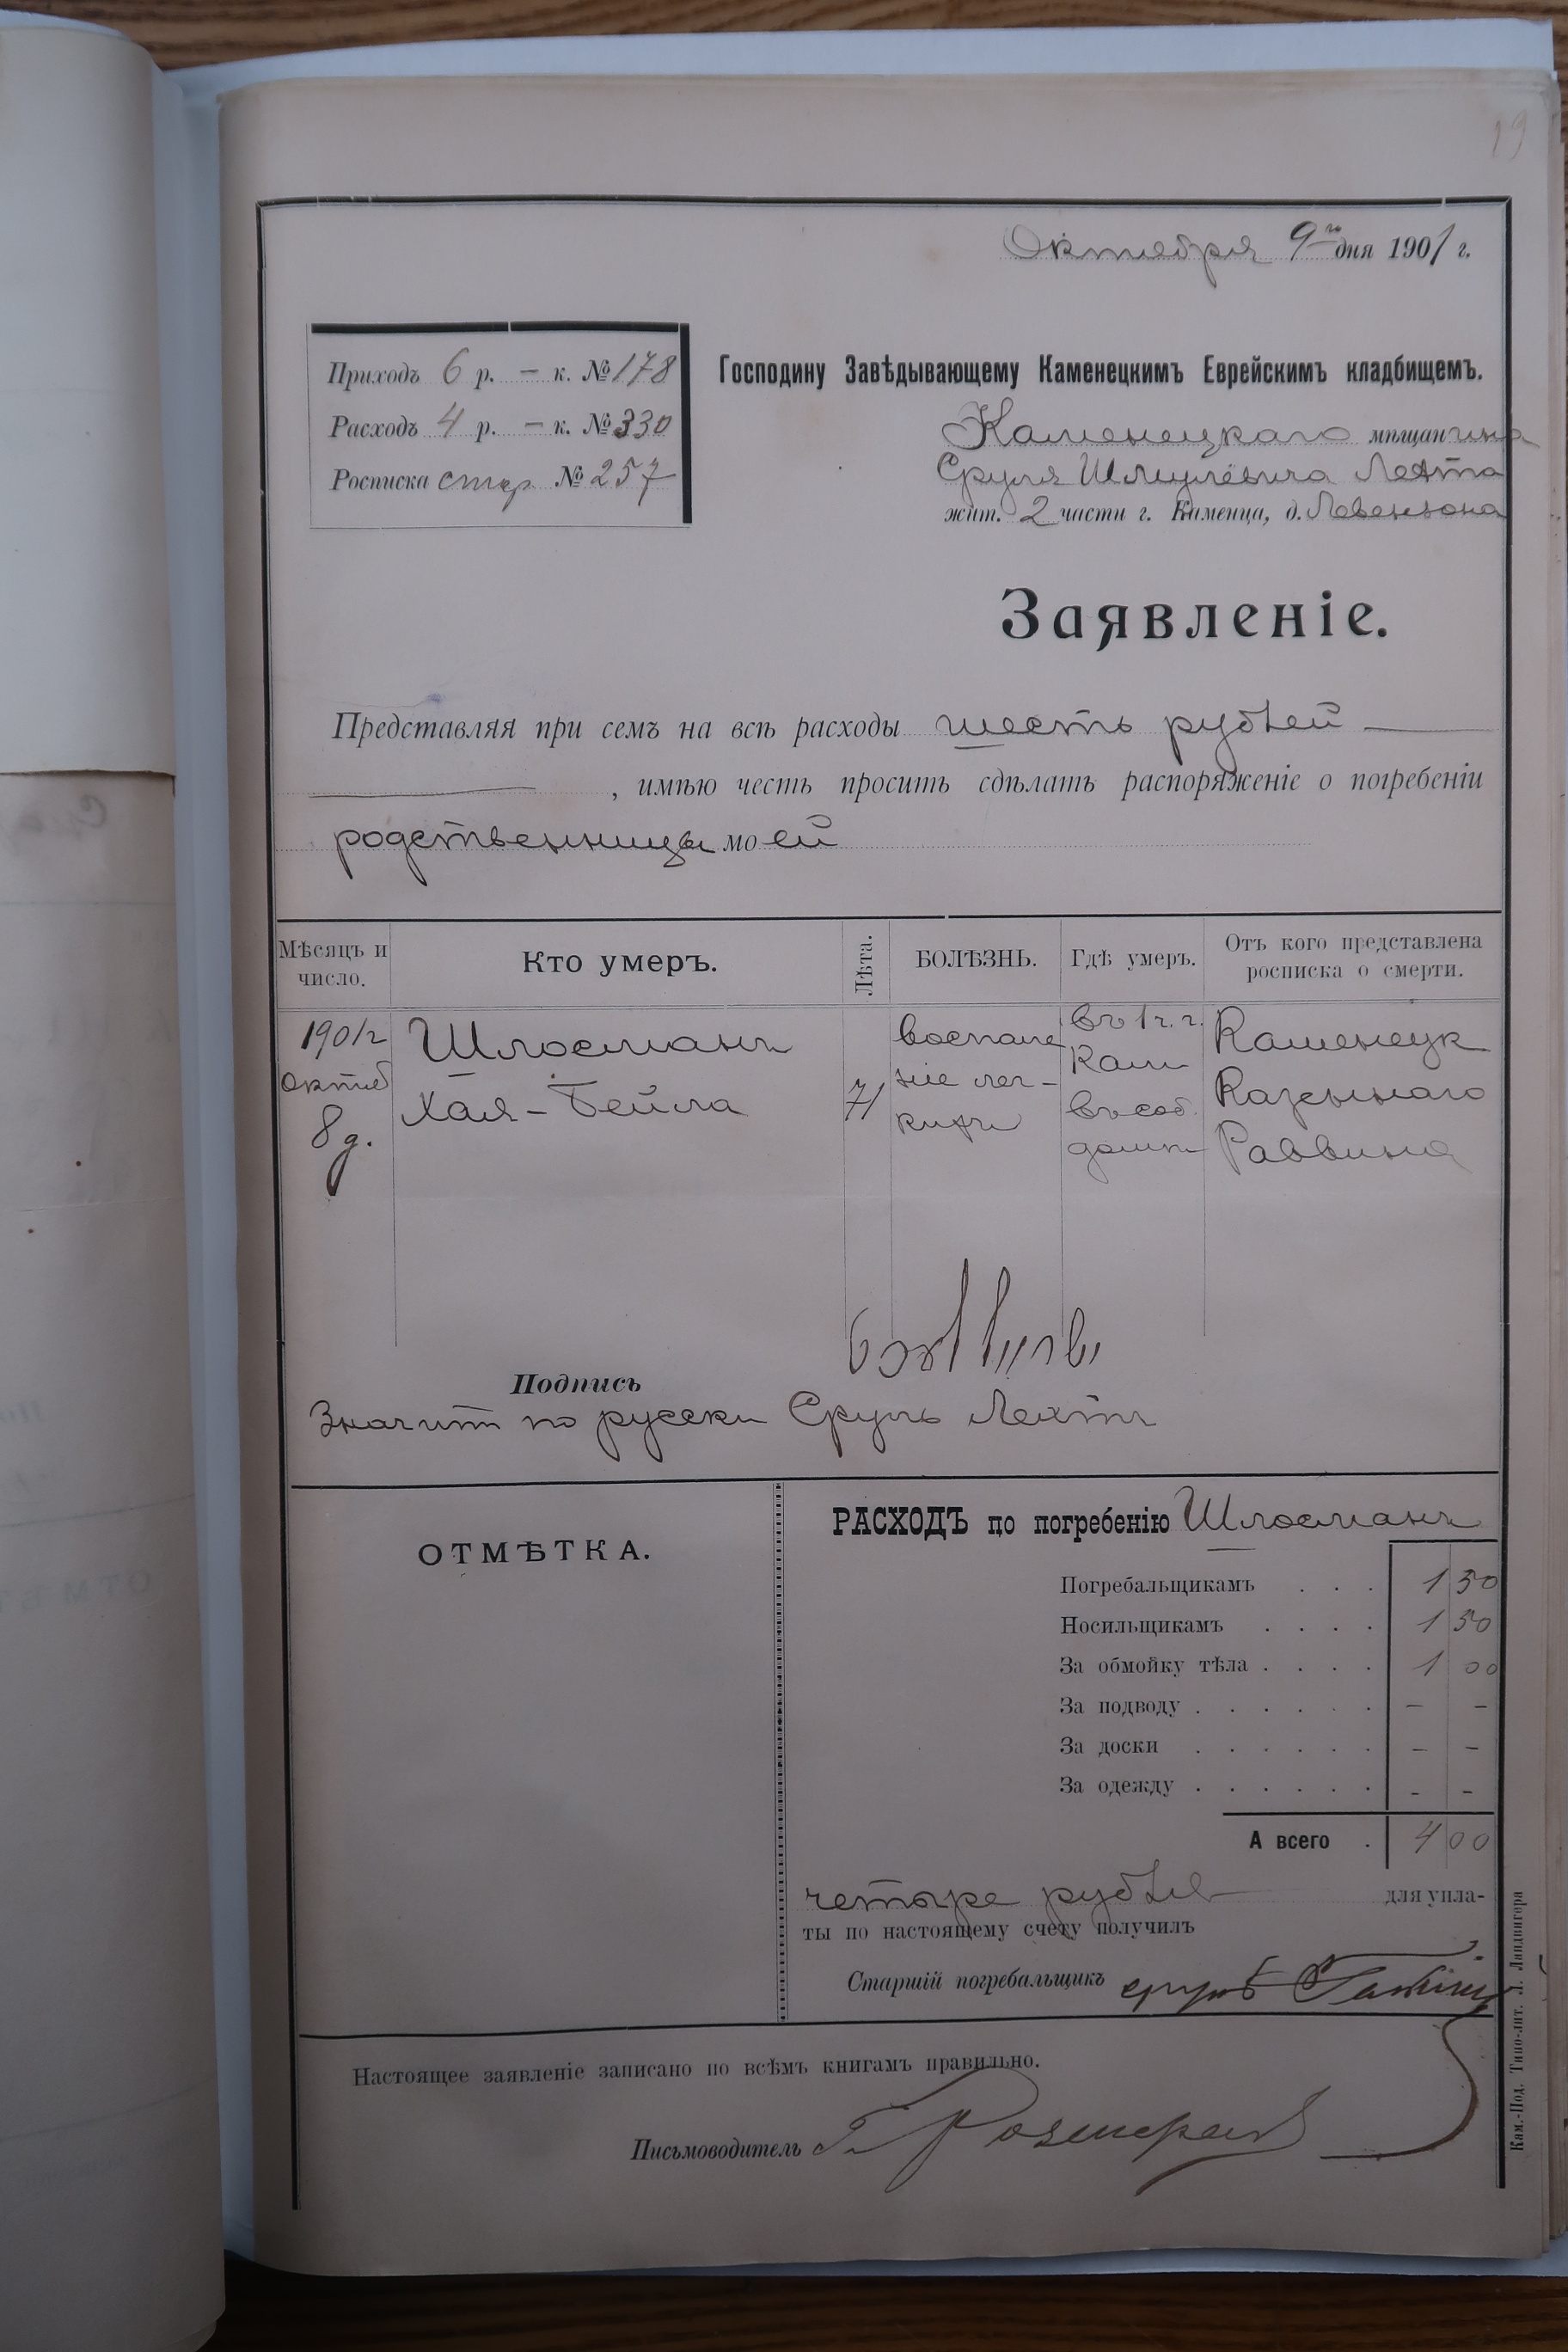 19
Октября 9го дня 1901 г.
Приходъ 6 р. – к. № 178
Расходъ 4 р. – к. № 330
Росписка стар. № 257
Господину Завѣдывающему Каменецкимъ Еврейскимъ кладбищемъ.
Каменецкаго мѣщанина
Сруля Шмулевича Лехта
жит. 2 части г. Каменца, д. Левензона
Заявленіе.
Представляя при семъ на всѣ расходы шесть рублей —
— , имѣю честь просить сдѣлать распоряженіе о погребеніи
родственницы моей
Мѣсяцъ и число. Кто умеръ. Лѣта. БОЛѢЗНЬ. Гдѣ умеръ. Отъ кого представлена росписка о смерти.
1901 г. Шлосманъ воспале въ 1 ч. г. Каменецк
октяб Хая-Бейла 71 ніе лег- Кам Казеннаго
8 д. кихъ въ соб. Раввина
домѣ
Подпись
Значит по русски Сруль Лехтъ
ОТМѢТКА.
РАСХОДЪ по погребенію Шлосманъ
Погребальщикамъ . . . 1 50
Носильщикамъ . . . . 1 50
За обмойку тѣла . . . . 1 00
За подводу . . . . . . – –
За доски . . . . . . – –
За одежду . . . . . . – –
А всего . 4 00
четыре рубля для упла-
ты по настоящему счету получилъ
Старшій погребальщикъ
Настоящее заявленіе записано по всѣмъ книгамъ правильно.
Письмоводитель
Кам.-Под. Типо-лит. Л. Ландвигера